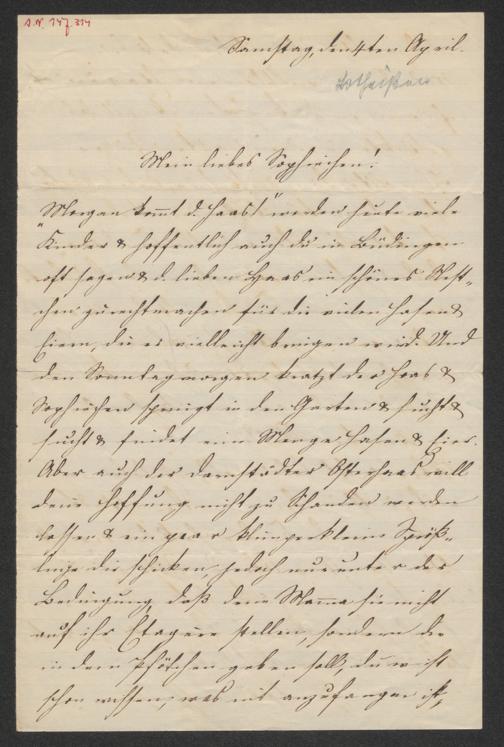 I.N. 147.314
Samstag, den 4ten April.
Lotheißen
Mein liebes Sophiechen!
"Morgen kommt d. Haas!" werden heute viele
Kinder & hoffentlich auch du in Büdingen
oft sagen & d. lieben Haas ein schönes Nest-
chen zurechtmachen für die vielen Hasen &
Eiern, die es vielleicht bringen wird. Und
den Sonntagmorgen kratzt der Haas &
Sophiechen springt in den Garten & sucht &
sucht & findet eine Menge Hasen & Eier.
Aber auch der Darmstädter Osterhaas will
deine Hoffnung nicht zu Schanden werden
lassen & ein paar klimperkleine Spröß-
linge dir schicken, jedoch nur unter der
Bedingung, daß deine Mama sie nicht
auf ihr Etagere stellen, sondern dir
in dein Pfötchen geben soll, du wirst
schon wissen, was mit anzufangen ist,